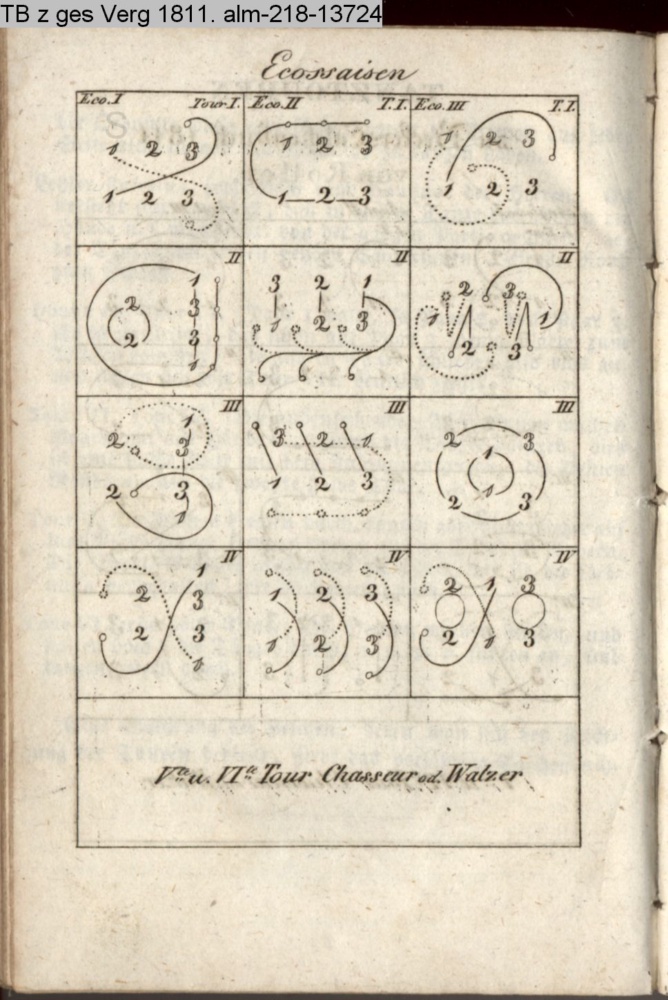 TB z ges Verg 1811. alm-218-13724
Ecossaisen
Eco.I Tour I. Eco.II T.I. Eco.III T.I.
1 2 3 1 2 3 1 2 3
1 2 3 1 2 3 1 2 3
II II II
1 3 2 1 2 3
2 3 1 1
2 3 1 2 3 2 3
1
III III III
1 3 2 1 2 3
2 3 1
2 3 1 2 3 1
1 2 3
IV IV IV
1
2 3 1 2 3 2 1 3
2 3 1 2 3 2 1 3
1
Vte u. VIte Tour Chasseur od. Walzer